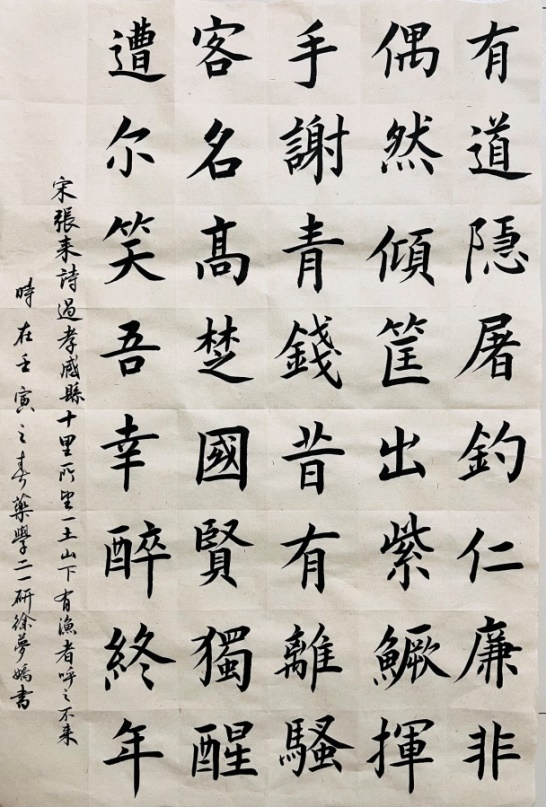 有道隐屠釣仁廉非
偶然傾筐出紫鱖揮
手謝青錢昔有離騷
客名高楚國賢獨醒
遭尔笑吾幸醉終年
宋張耒詩過孝感縣十里所望一土山下有漁者呼之不来
時在壬寅之春藥學二一研徐夢嬌書